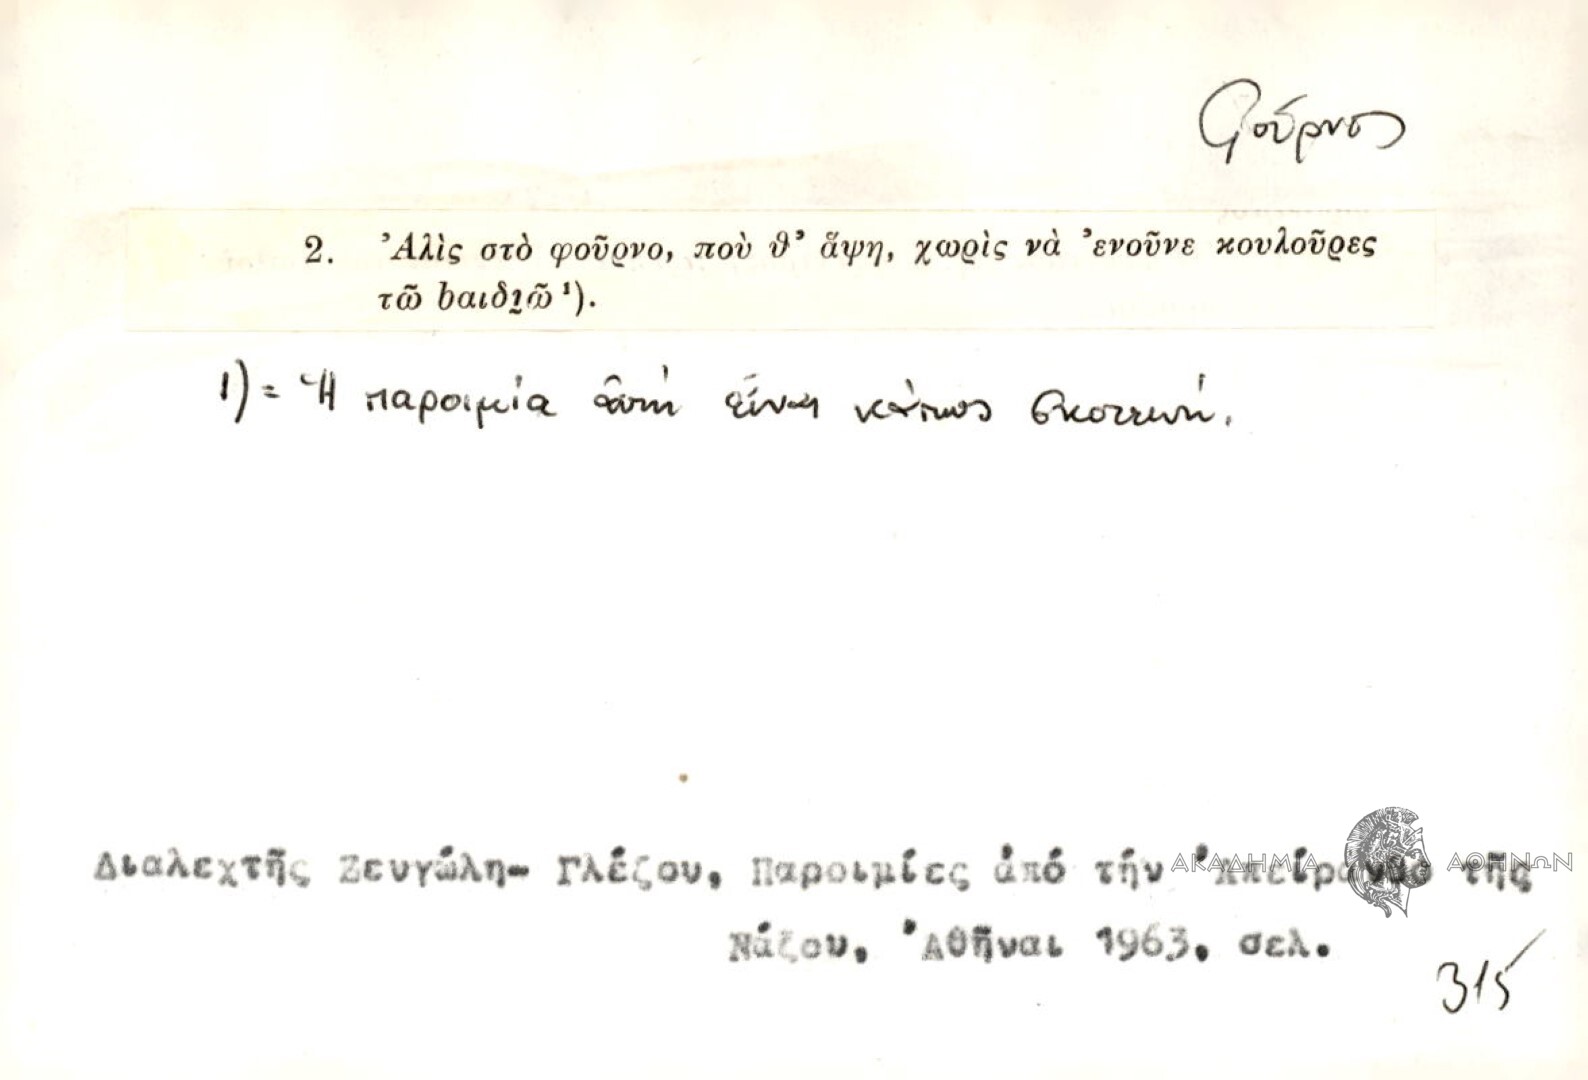 φούρνος
2. Ἀλὶς στὸ φοῦρνο, ποὺ θ’ ἄψη, χωρὶς νὰ ’ενοῦνε κουλοῦρες
τῶ bαιδι̮ῶ ¹).
1) = Ἡ παροιμία αὐτὴ εἶναι κάπως σκοτεινή.
Διαλεχτῆς Ζευγώλη- Γλέζου, Παροιμίες ἀπό τήν Ἀπείρανθο τῆς
ΑΚΑΔΗΜΙΑ ΑΘΗΝΩΝ
Νάξου, Ἀθῆναι 1963, σελ.
315